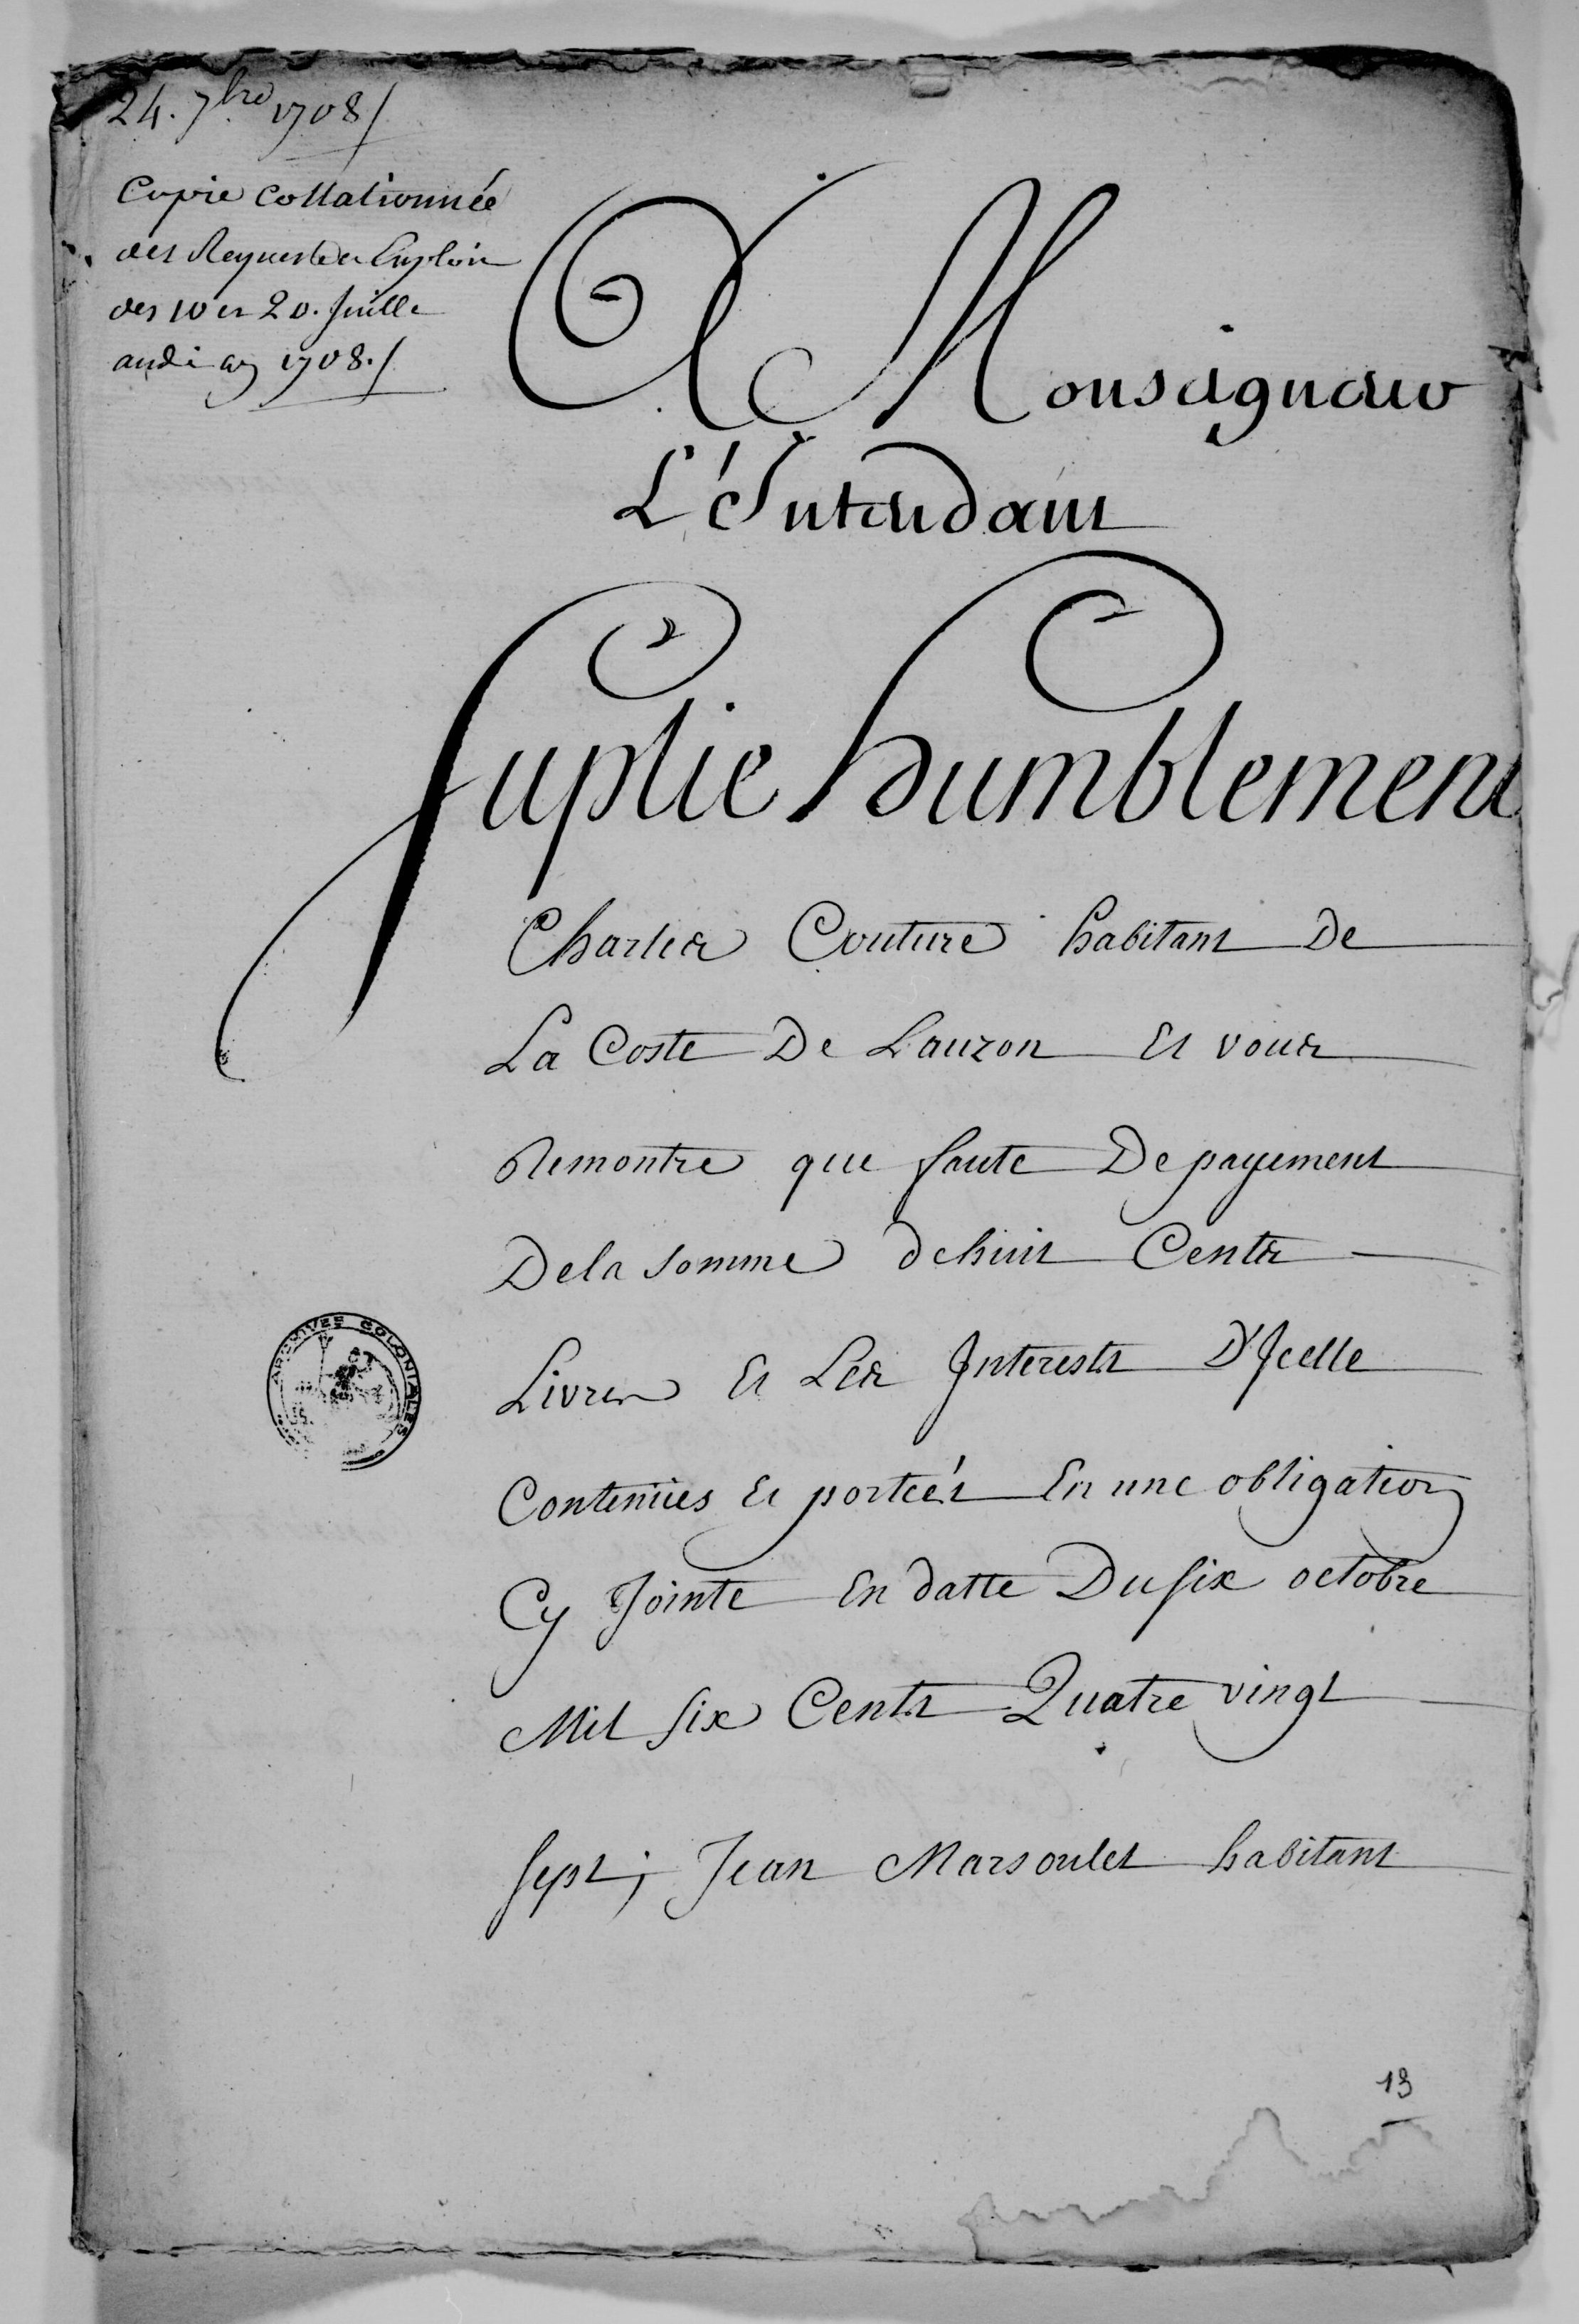 24. 7bre 1708 /
Copie Collationnée
des Requeste et Exploit
des 10 et 20. Juillet
audit an 1708. /
A Monseigneur
L'Intendant
Suplie humblement
Charles Couture habitant De
La Coste De Lauzon Et vous
Remontre que faute De payement
Dela somme dehuit Cents
Livres Et Les Interests D'Icelle
Contenües Et porteés En une obligation
Cy Jointe En datte Dusix octobre
Mil six Cents Quatre vingt
sept; Jean Marsoulet habitant
ARCHIVES COLONIALES
13